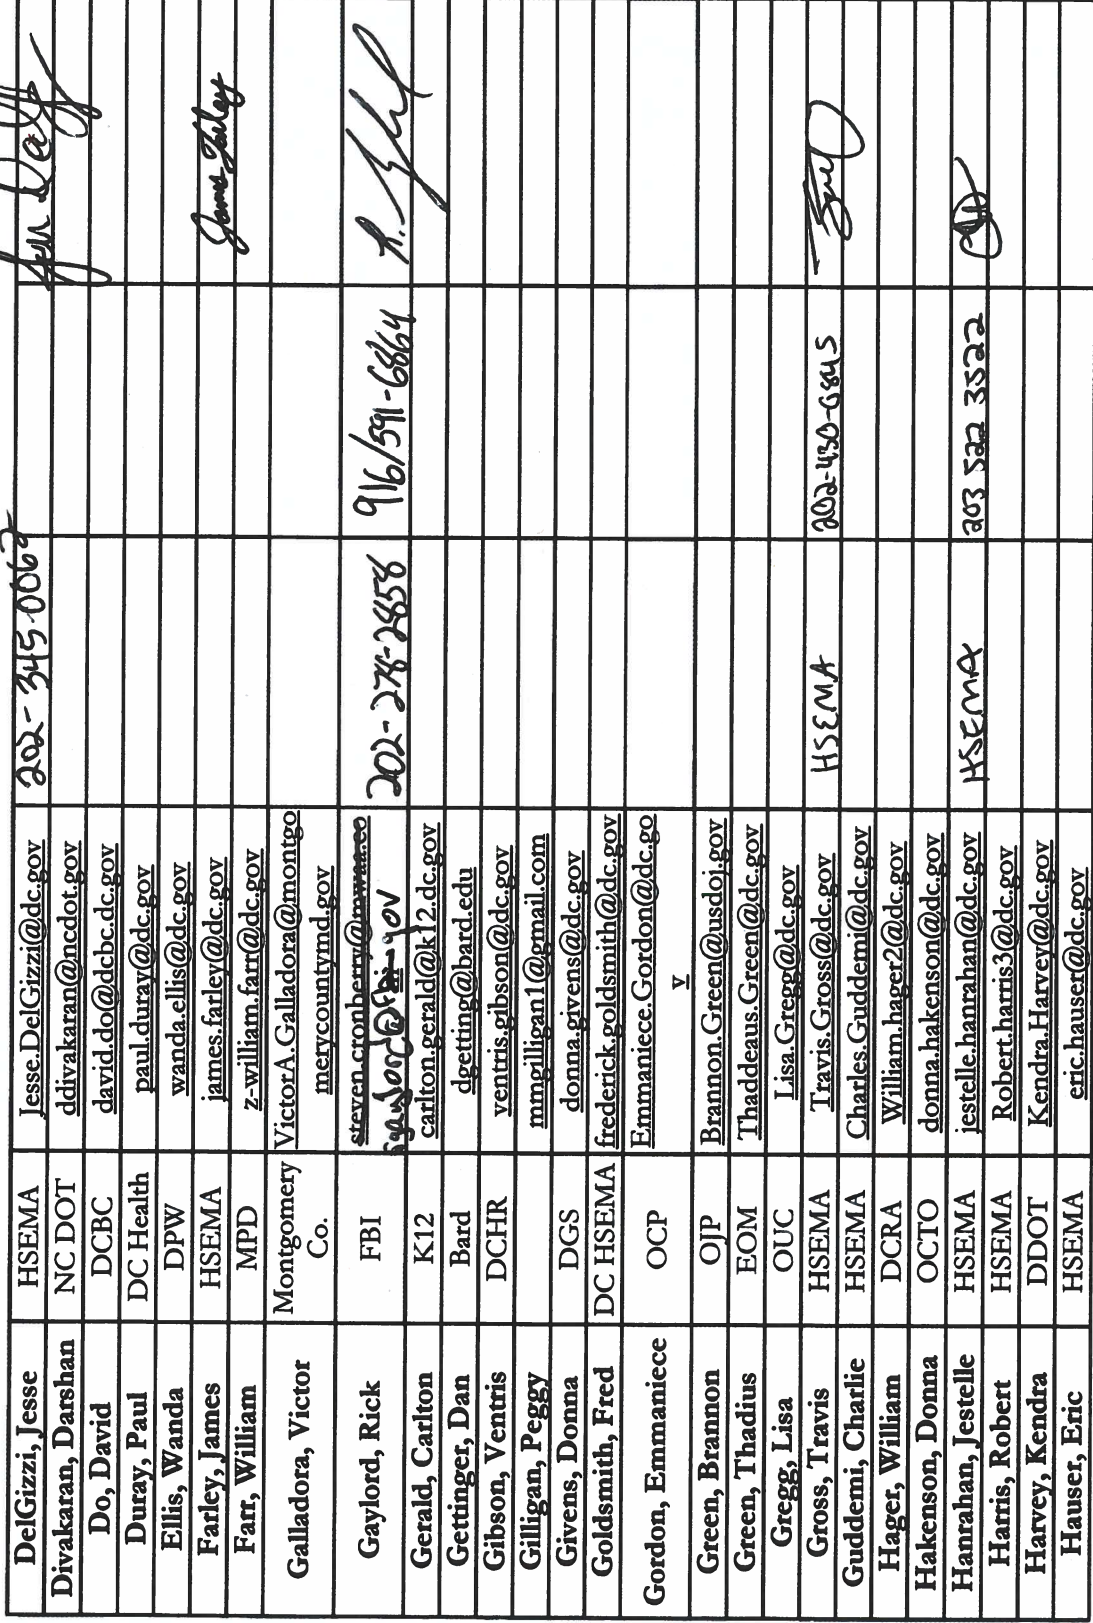 DelGizzi, Jesse HSEMA Jesse.DelGizzi@dc.gov 202-345-0062
Divakaran, Darshan NC DOT ddivakaran@ncdot.gov
Do, David DCBC david.do@dcbc.dc.gov
Duray, Paul DC Health paul.duray@dc.gov
Ellis, Wanda DPW wanda.ellis@dc.gov
Farley, James HSEMA james.farley@dc.gov James Farley
Farr, William MPD z-william.farr@dc.gov
Galladora, Victor Montgomery Co. VictorA.Galladora@montgo
merycountymd.gov
Gaylord, Rick FBI steven.cronberry@mwaa.co 202-278-2858 916/591-6864
Gerald, Carlton K12 carlton.gerald@k12.dc.gov
Gettinger, Dan Bard dgetting@bard.edu
Gibson, Ventris DCHR ventris.gibson@dc.gov
Gilligan, Peggy mmgilligan1@gmail.com
Givens, Donna DGS donna.givens@dc.gov
Goldsmith, Fred DC HSEMA frederick.goldsmith@dc.gov
Gordon, Emmaniece OCP Emmaniece.Gordon@dc.go
v
Green, Brannon OJP Brannon.Green@usdoj.gov
Green, Thadius EOM Thaddeaus.Green@dc.gov
Gregg, Lisa OUC Lisa.Gregg@dc.gov
Gross, Travis HSEMA Travis.Gross@dc.gov HSEMA 202-430-0845
Guddemi, Charlie HSEMA Charles.Guddemi@dc.gov
Hager, William DCRA William.hager2@dc.gov
Hakenson, Donna OCTO donna.hakenson@dc.gov
Hanrahan, Jestelle HSEMA jestelle.hanrahan@dc.gov HSEMA 203 522 3522
Harris, Robert HSEMA Robert.harris3@dc.gov
Harvey, Kendra DDOT Kendra.Harvey@dc.gov
Hauser, Eric HSEMA eric.hauser@dc.gov